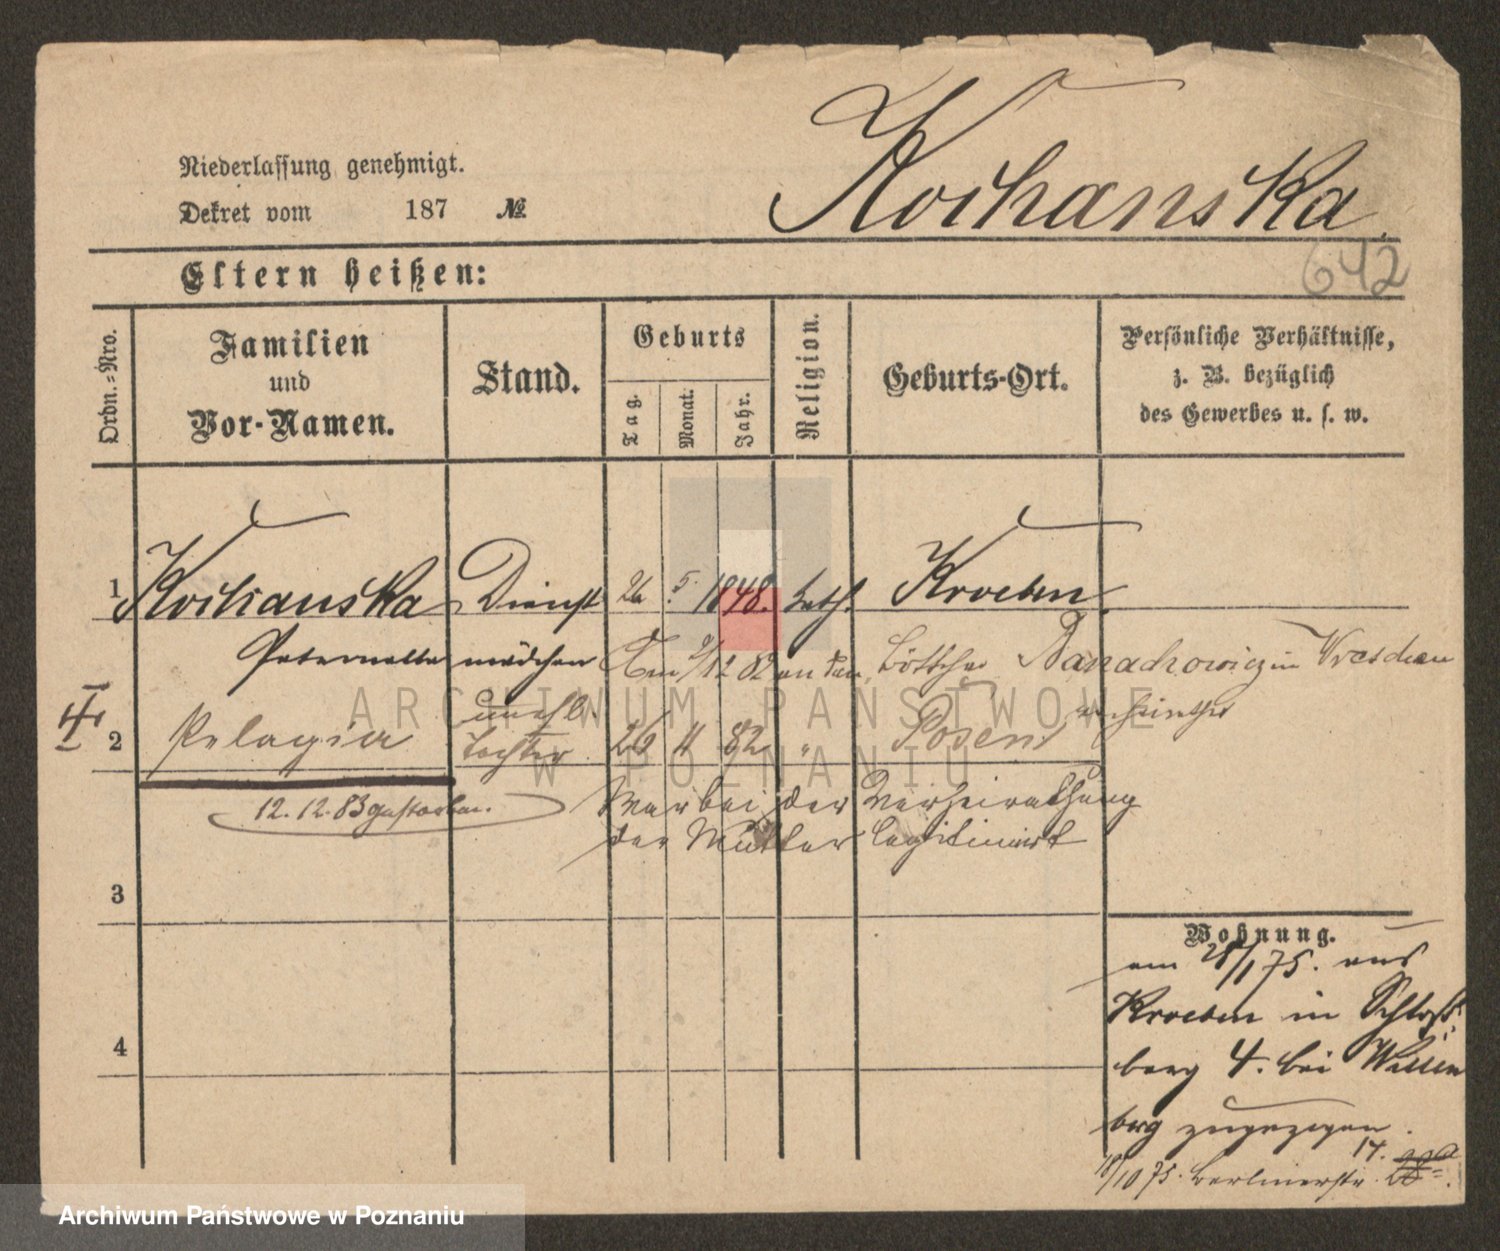 Niederlassung genehmigt.
Dekret vom 187 №
Kochanska
642
Eltern heißen:
Ordn.-Nro.
Familien
und
Vor-Namen.
Stand.
Geburts
Tag.
Monat.
Jahr.
Religion.
Geburts-Ort.
Persönliche Verhältnisse,
z. B. bezüglich
des Gewerbes u. s. w.
1 Kochanska Dienst 5. 1848. kath. Kroeben
mädchen Am 12 82 an den Böttcher in Wreschen
verheirathet
2 Pelagia unehl. Tochter 26 11 82 " Posen
12.12.83 gestorben.
War bei der Verheirathung
der Mutter legitimirt
3
4
Wohnung.
am 28/1 75. aus
Kroeben in Schloß
berg 4. bei Wissen
berg zugezogen.
18/10 75. Berlinerstr. 17.
ARCHIWUM PAŃSTWOWE
W POZNANIU
Archiwum Państwowe w Poznaniu